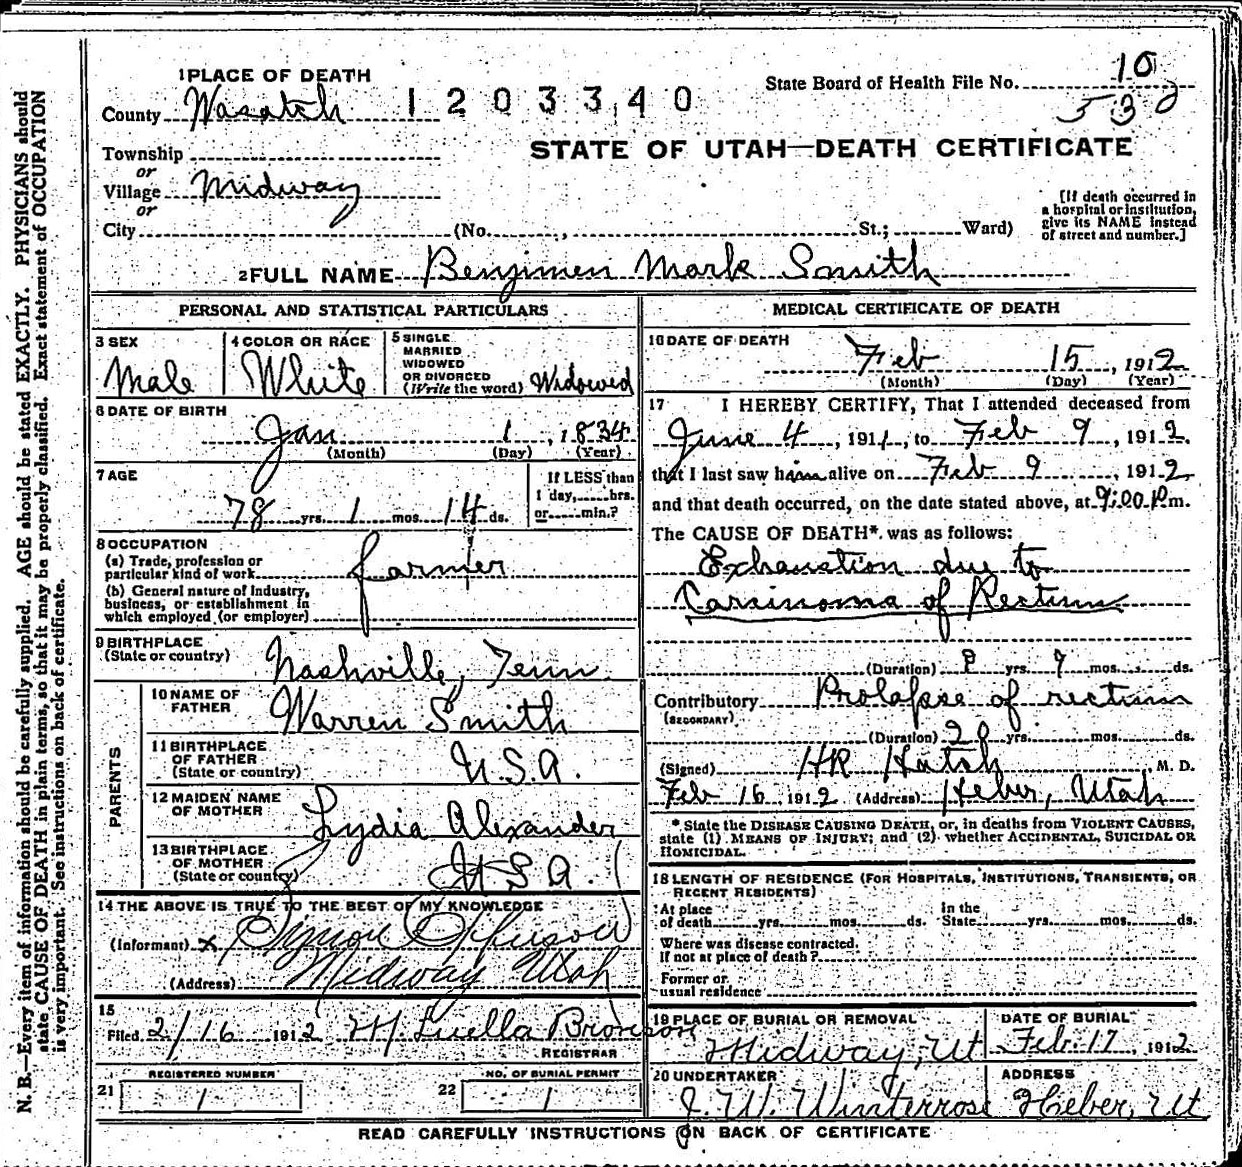 1 PLACE OF DEATH
State Board of Health File No. 10
530
County Wasatch 1203340
STATE OF UTAH—DEATH CERTIFICATE
Township
or
Village Midway
or
City (No. , St.; Ward)
[If death occurred in
a hospital or institution,
give its NAME instead
of street and number.]
2 FULL NAME Benjimen Mark Smith
PERSONAL AND STATISTICAL PARTICULARS
3 SEX
Male
4 COLOR OR RACE
White
5 SINGLE
MARRIED
WIDOWED
OR DIVORCED
(Write the word) Widowed
6 DATE OF BIRTH
Jan 1, 1834
(Month) (Day) (Year)
7 AGE
78 yrs. 1 mos. 14 ds.
If LESS than
1 day, hrs.
or min.?
8 OCCUPATION
(a) Trade, profession or
particular kind of work farmer
(b) General nature of Industry,
business, or establishment in
which employed (or employer)
9 BIRTHPLACE
(State or country) Nashville, Tenn.
PARENTS
10 NAME OF
FATHER Warren Smith
11 BIRTHPLACE
OF FATHER
(State or country) U.S.A.
12 MAIDEN NAME
OF MOTHER Lydia Alexander
13 BIRTHPLACE
OF MOTHER
(State or country) U.S.A.
14 THE ABOVE IS TRUE TO THE BEST OF MY KNOWLEDGE
(Informant) x Simon
(Address) Midway Utah
15
Filed 2/16 1912 M Luella Bronson
REGISTRAR
21 REGISTERED NUMBER
1
22 NO. OF BURIAL PERMIT
1
MEDICAL CERTIFICATE OF DEATH
16 DATE OF DEATH
Feb 15, 1912
(Month) (Day) (Year)
17 I HEREBY CERTIFY, That I attended deceased from
June 4, 1911, to Feb 9, 1912.
that I last saw him alive on Feb 9, 1912
and that death occurred, on the date stated above, at 9:00 P.m.
The CAUSE OF DEATH* was as follows:
Exhaustion due to
Carcinoma of Rectum
(Duration) yrs. 9 mos. ds.
Contributory Prolapse of rectum
(SECONDARY)
(Duration) 20 yrs. mos. ds.
(Signed) HR Hatch, M. D.
Feb 16 1912 (Address) Heber, Utah
* State the DISEASE CAUSING DEATH, or, in deaths from VIOLENT CAUSES,
state (1) MEANS OF INJURY; and (2) whether ACCIDENTAL, SUICIDAL OR
HOMICIDAL.
18 LENGTH OF RESIDENCE (FOR HOSPITALS, INSTITUTIONS, TRANSIENTS, OR
RECENT RESIDENTS)
At place
of death yrs. mos. ds.
in the
State yrs. mos. ds.
Where was disease contracted.
If not at place of death?
Former or
usual residence
19 PLACE OF BURIAL OR REMOVAL
Midway, Ut
DATE OF BURIAL
Feb. 17, 1912
20 UNDERTAKER
J. W. Winterrose
ADDRESS
Heber, Ut
READ CAREFULLY INSTRUCTIONS ON BACK OF CERTIFICATE
N. B.—Every item of information should be carefully supplied. AGE should be stated EXACTLY. PHYSICIANS should
state CAUSE OF DEATH in plain terms, so that it may be properly classified. Exact statement of OCCUPATION
is very important. See instructions on back of certificate.